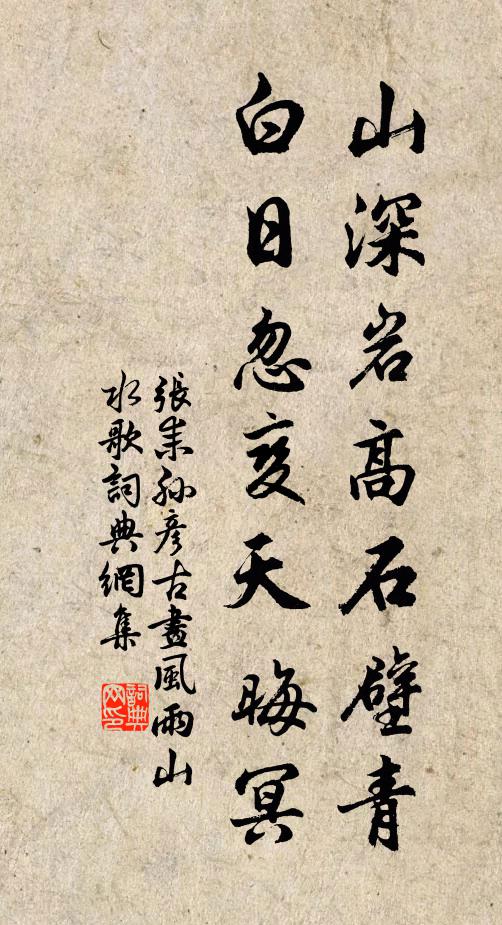 山深岩高石壁青
白日忽变天晦冥
張耒孙彦古畫風雨山
水歌詞典網集
詞典网印